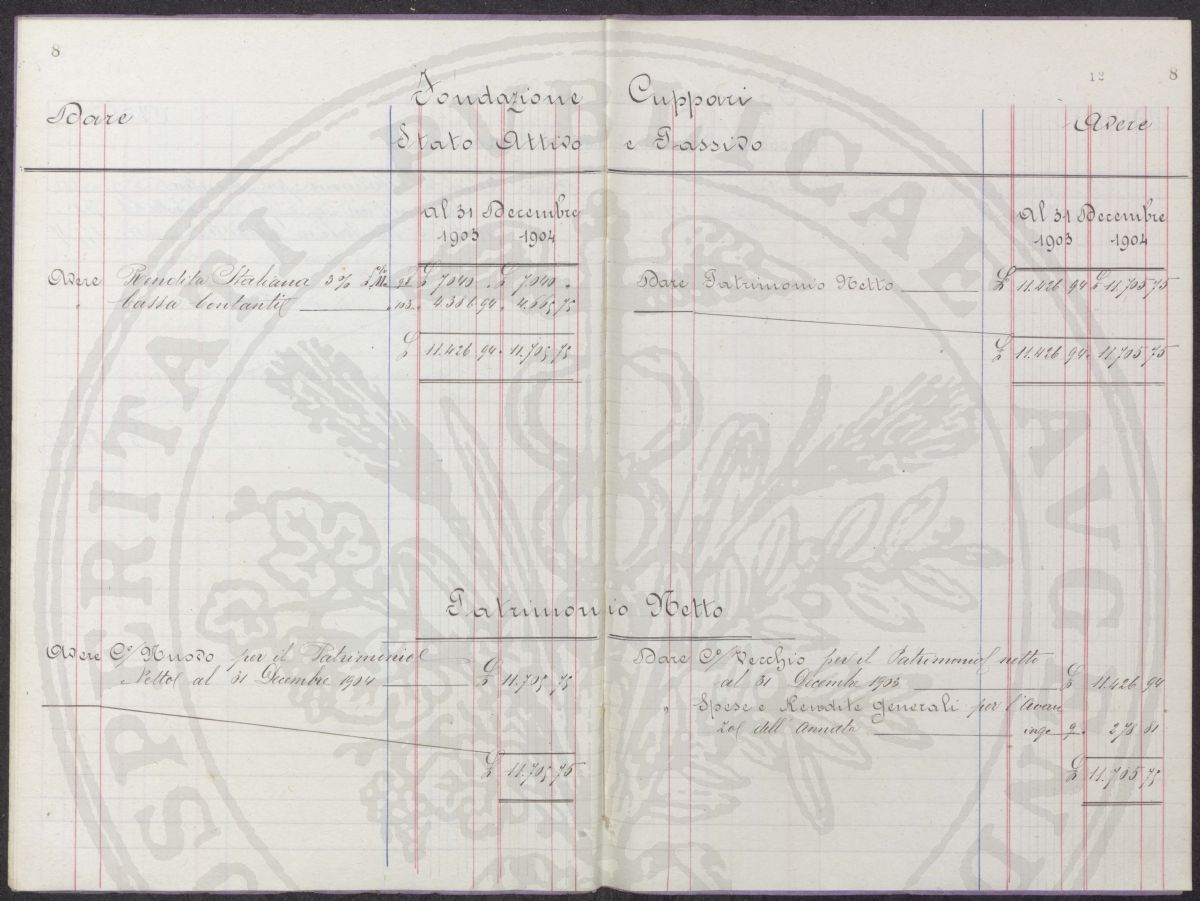 8
12 8
Fondazione Cuppari
Dare Avere
Stato Attivo e Passivo
Al 31 Decembre
1903 1904
Avere Rendita Italiana 3% £ 7040 " £ 7040 "
" Cassa Contanti 4.386 94 " 4.665 75
£ 11.426 94 " 11.705 75
Al 31 Decembre
1903 1904
Dare Patrimonio Netto £ 11.426 94 £ 11.705 75
£ 11.426 94 " 11.705 75
Patrimonio Netto
Avere C/ Nuovo per il Patrimonio
Netto al 31 Decembre 1904 £ 11.705 75
£ 11.705 75
Dare C/ Vecchio per il Patrimonio netto
al 31 Decembre 1903 £ 11.426 94
" Spese e Rendite Generali per l'Avan
zo dell'Annata 278 81
£ 11.705 75
PROSPERITATI PUBLICAE AVGENDAE